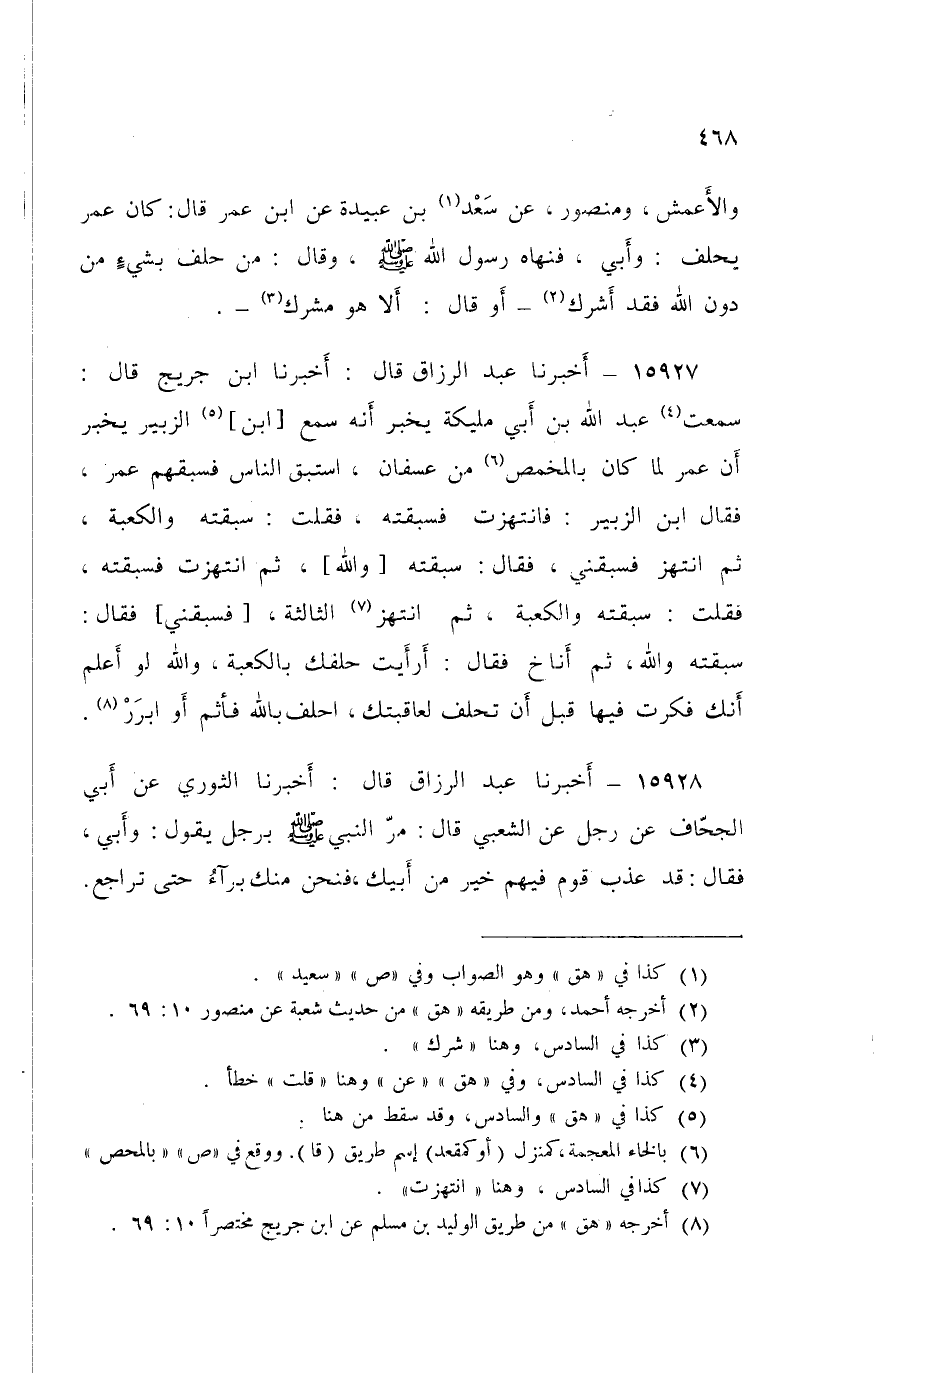 ٤٦٨
والأَعمش ، ومنصور ، عن سَعْد(١) بن عبيدة عن ابن عمر قال : كان عمر
يحلف : وأَبي ، فنهاه رسول الله ﷺ ، وقال : من حلف بشيءٍ من
دون الله فقد أَشرك(٢) – أَو قال : أَلا هو مشرك(٣) – .
١٥٩٢٧ – أَخبرنا عبد الرزاق قال : أَخبرنا ابن جريج قال :
سمعت(٤) عبد الله بن أَبي مليكة يخبر أَنه سمع [ابن](٥) الزبير يخبر
أَن عمر لما كان بالمخمص(٦) من عسفان ، استبق الناس فسبقهم عمر ،
فقال ابن الزبير : فانتهزت فسبقته ، فقلت : سبقته والكعبة ،
ثم انتهز فسبقني ، فقال : سبقته [والله] ، ثم انتهزت فسبقته ،
فقلت : سبقته والكعبة ، ثم انتهز(٧) الثالثة ، [فسبقني] فقال :
سبقته والله ، ثم أَناخ فقال : أَرأَيت حلفك بالكعبة ، والله لو أَعلم
أَنك فكرت فيها قبل أَن تحلف لعاقبتك ، احلف بالله فأثم أَو ابرَرْ(٨) .
١٥٩٢٨ – أَخبرنا عبد الرزاق قال : أَخبرنا الثوري عن أَبي
الجحّاف عن رجل عن الشعبي قال : مرّ النبي ﷺ برجل يقول : وأَبي ،
فقال : قد عذب قوم فيهم خير من أَبيك ، فنحن منك برآءُ حتى تراجع .
(١) كذا في « هق » وهو الصواب وفي «ص » « سعيد » .
(٢) أخرجه أحمد، ومن طريقه « هق » من حديث شعبة عن منصور ١٠: ٦٩ .
(٣) كذا في السادس، وهنا « شرك » .
(٤) كذا في السادس، وفي « هق » « عن » وهنا « قلت » خطأ .
(٥) كذا في « هق » والسادس، وقد سقط من هنا .
(٦) بالخاء المعجمة، كمنزل ( أو كمقعد) إسم طريق (قا). ووقع في «ص» « بالمحص »
(٧) كذا في السادس ، وهنا « انتهزت» .
(٨) أخرجه « هق » من طريق الوليد بن مسلم عن ابن جريج مختصراً ١٠: ٦٩ .